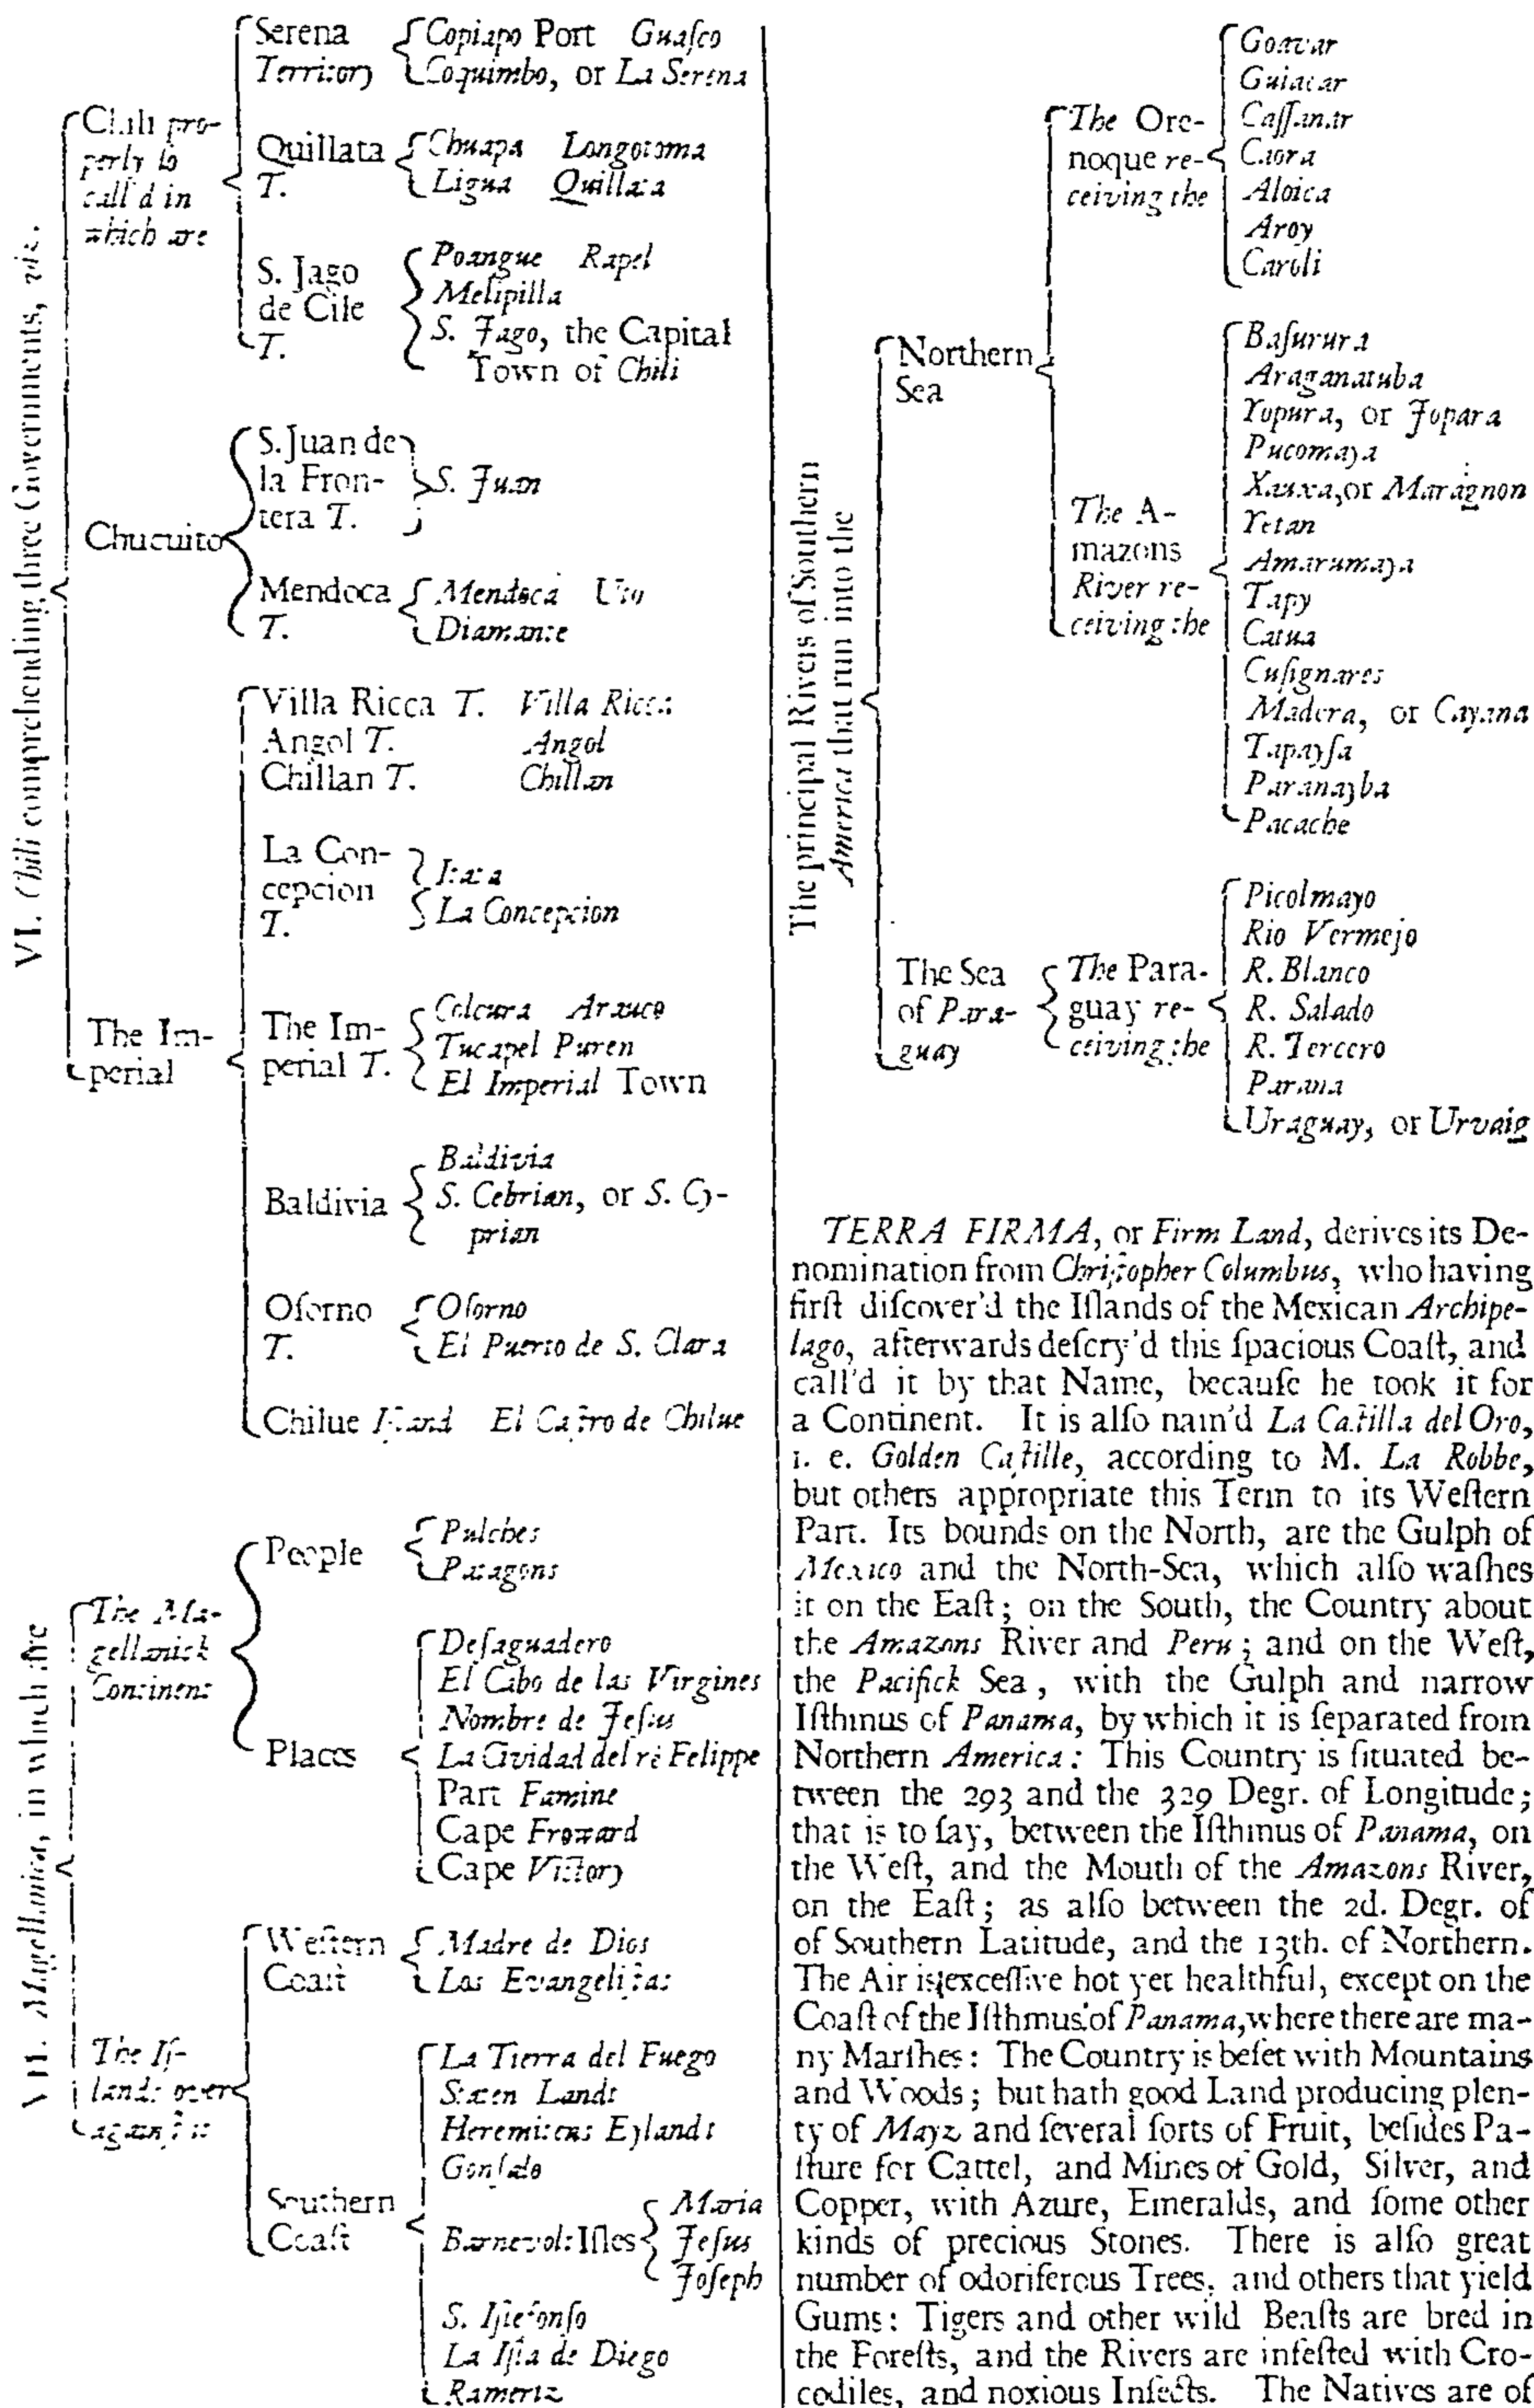 VI. Chili comprehending three Governments, viz.
Chili pro-
perly so
call'd in
which are
Serena
Territory
Copiapo Port Guaſco
Coquimbo, or La Serena
Quillata
T.
Chuapa Longotoma
Ligua Quillata
S. Jago
de Cile
T.
Poangue Rapel
Melipilla
S. Jago, the Capital
Town of Chili
Chucuito
S. Juan de
la Fron-
tera T.
S. Juan
Mendoca
T.
Mendoca Uco
Diamante
The Im-
perial
Villa Ricca T. Villa Ricca
Angol T. Angol
Chillan T. Chillan
La Con-
cepcion
T.
Itata
La Concepcion
The Im-
perial T.
Colcura Arauco
Tucapel Puren
El Imperial Town
Baldivia
Baldivia
S. Cebrian, or S. Cy-
prian
Oſorno
T.
Oſorno
El Puerto de S. Clara
Chilue Iſland El Caſtro de Chilue
VII. Magellanica, in which are
The Ma-
gellanick
Continent
People
Pulches
Patagons
Places
Deſaguadero
El Cabo de las Virgines
Nombre de Jeſus
La Cividad del rè Felippe
Part Famine
Cape Froward
Cape Victory
The Iſ-
lands over
againſt it
Weſtern
Coaſt
Madre de Dios
Los Evangeliſtas
Southern
Coaſt
La Tierra del Fuego
Staten Landt
Heremitens Eylandt
Gonſalo
Barnevolt Iſles
Maria
Jeſus
Joſeph
S. Iſlefonſo
La Iſla de Diego
Ramertz
The principal Rivers of Southern
America that run into the
Northern
Sea
The Ore-
noque re-
ceiving the
Goavar
Guiacar
Caſſanar
Caora
Aloica
Aroy
Caroli
The A-
mazons
River re-
ceiving the
Baſurura
Araganatuba
Yopura, or Jopara
Pucomaya
Xauxa, or Maragnon
Yetan
Amarumaya
Tapy
Catua
Cuſignares
Madera, or Cayana
Tapayſa
Paranayba
Pacache
The Sea
of Para-
guay
The Para-
guay re-
ceiving the
Picolmayo
Rio Vermejo
R. Blanco
R. Salado
R. Tercero
Parana
Uraguay, or Urvaig
TERRA FIRMA, or Firm Land, derives its De-
nomination from Chriſtopher Columbus, who having
firſt diſcover'd the Iſlands of the Mexican Archipe-
lago, afterwards deſcry'd this ſpacious Coaſt, and
call'd it by that Name, becauſe he took it for
a Continent. It is alſo nam'd La Caſtilla del Oro,
i. e. Golden Caſtille, according to M. La Robbe,
but others appropriate this Term to its Weſtern
Part. Its bounds on the North, are the Gulph of
Mexico and the North-Sea, which alſo waſhes
it on the Eaſt; on the South, the Country about
the Amazons River and Peru; and on the Weſt,
the Pacifick Sea, with the Gulph and narrow
Iſthmus of Panama, by which it is ſeparated from
Northern America: This Country is ſituated be-
tween the 293 and the 329 Degr. of Longitude;
that is to ſay, between the Iſthmus of Panama, on
the Weſt, and the Mouth of the Amazons River,
on the Eaſt; as alſo between the 2d. Degr. of
of Southern Latitude, and the 13th. of Northern.
The Air is exceſſive hot yet healthful, except on the
Coaſt of the Iſthmus of Panama, where there are ma-
ny Marſhes: The Country is beſet with Mountains
and Woods; but hath good Land producing plen-
ty of Mayz and ſeveral ſorts of Fruit, beſides Pa-
ſture for Cattel, and Mines of Gold, Silver, and
Copper, with Azure, Emeralds, and ſome other
kinds of precious Stones. There is alſo great
number of odoriferous Trees, and others that yield
Gums: Tigers and other wild Beaſts are bred in
the Foreſts, and the Rivers are infeſted with Cro-
codiles, and noxious Inſects. The Natives are of